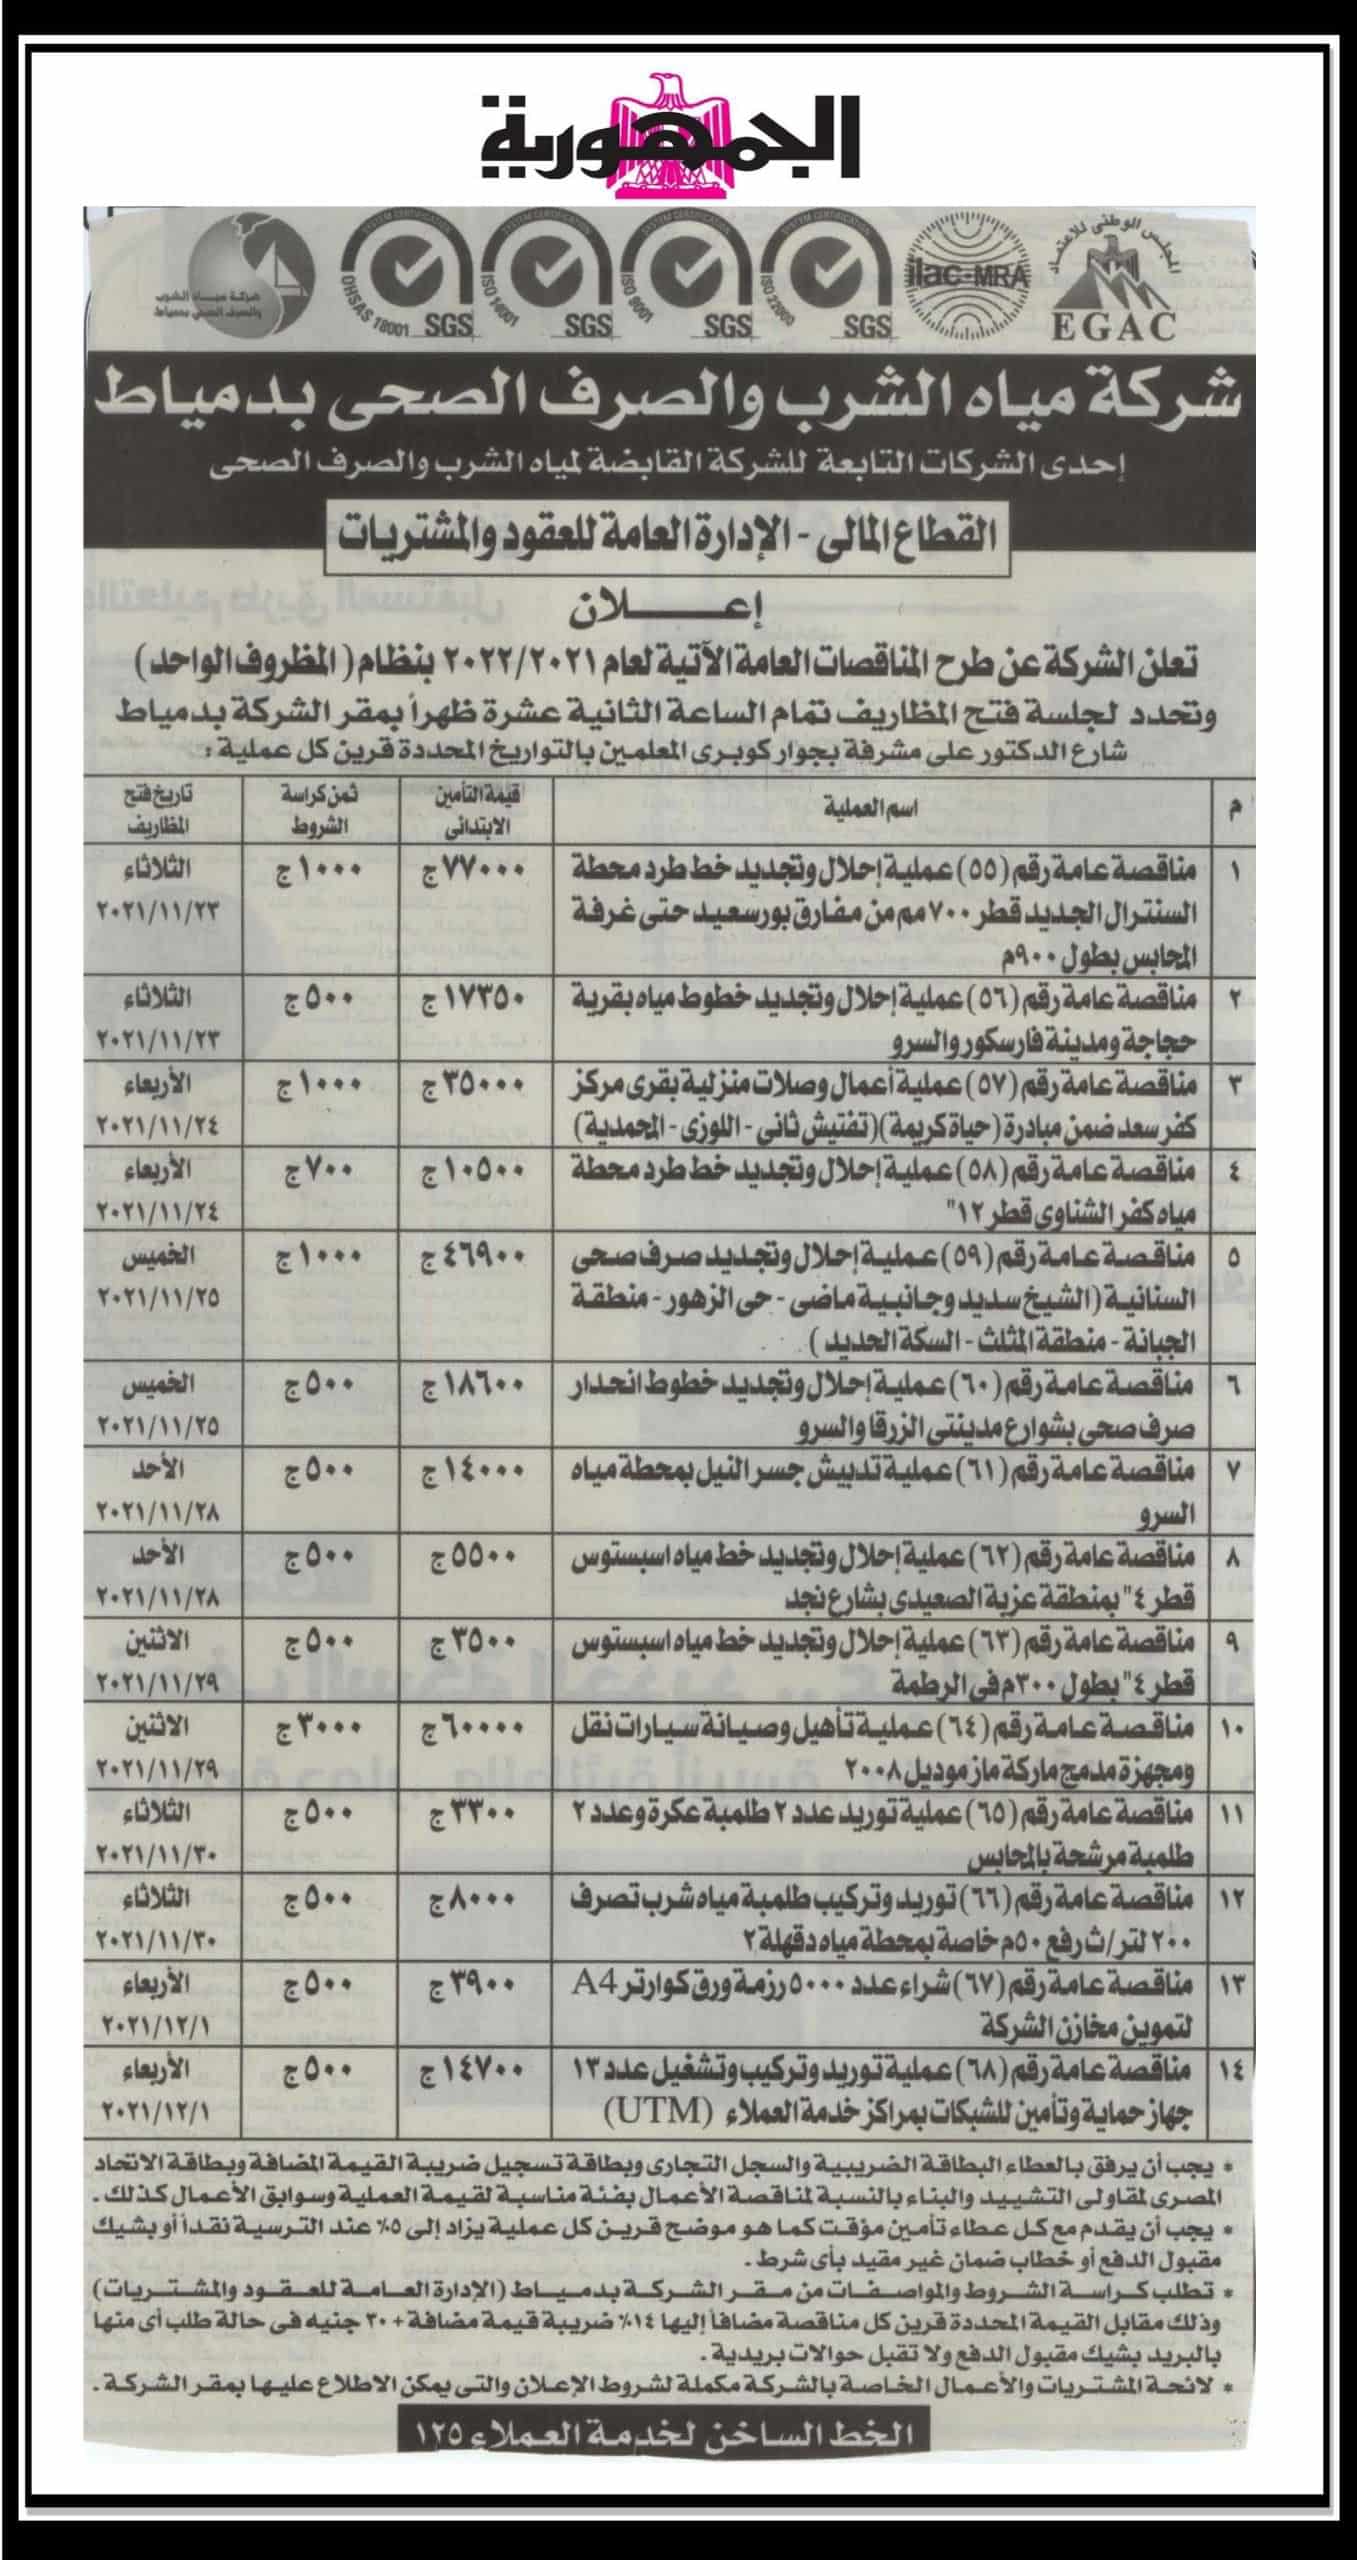 الجمهورية
شركة مياه الشرب
والصرف الصحى بدمياط
SYSTEM CERTIFICATION
OHSAS 18001
SGS
SYSTEM CERTIFICATION
ISO 14001
SGS
SYSTEM CERTIFICATION
ISO 9001
SGS
SYSTEM CERTIFICATION
ISO 22000
SGS
ilac-MRA
المجلس الوطنى للاعتماد
EGAC
شركة مياه الشرب والصرف الصحى بدمياط
إحدى الشركات التابعة للشركة القابضة لمياه الشرب والصرف الصحى
القطاع المالى - الإدارة العامة للعقود والمشتريات
إعـــــلان
تعلن الشركة عن طرح المناقصات العامة الآتية لعام ٢٠٢٢/٢٠٢١ بنظام (المظروف الواحد)
وتحدد لجلسة فتح المظاريف تمام الساعة الثانية عشرة ظهراً بمقر الشركة بدمياط
شارع الدكتور على مشرفة بجوار كوبرى المعلمين بالتواريخ المحددة قرين كل عملية :
م اسم العملية قيمة التأمين الابتدائى ثمن كراسة الشروط تاريخ فتح المظاريف
١ مناقصة عامة رقم (٥٥) عملية إحلال وتجديد خط طرد محطة ٧٧٠٠٠ج ١٠٠٠ج الثلاثاء
السنترال الجديد قطر ٧٠٠مم من مفارق بورسعيد حتى غرفة ٢٠٢١/١١/٢٣
المحابس بطول ٩٠٠م
٢ مناقصة عامة رقم (٥٦) عملية إحلال وتجديد خطوط مياه بقرية ١٧٣٥٠ج ٥٠٠ج الثلاثاء
حجاجة ومدينة فارسكور والسرو ٢٠٢١/١١/٢٣
٣ مناقصة عامة رقم (٥٧) عملية أعمال وصلات منزلية بقرى مركز ٣٥٠٠٠ج ١٠٠٠ج الأربعاء
كفر سعد ضمن مبادرة (حياة كريمة)(تفتيش ثانى - اللوزى - المحمدية) ٢٠٢١/١١/٢٤
٤ مناقصة عامة رقم (٥٨) عملية إحلال وتجديد خط طرد محطة ١٠٥٠٠ج ٧٠٠ج الأربعاء
مياه كفر الشناوى قطر ١٢" ٢٠٢١/١١/٢٤
٥ مناقصة عامة رقم (٥٩) عملية إحلال وتجديد صرف صحى ٤٦٩٠٠ج ١٠٠٠ج الخميس
السنانية (الشيخ سديد وجانبية ماضى - حى الزهور - منطقة ٢٠٢١/١١/٢٥
الجبانة - منطقة المثلث - السكة الحديد )
٦ مناقصة عامة رقم (٦٠) عملية إحلال وتجديد خطوط انحدار ١٨٦٠٠ج ٥٠٠ج الخميس
صرف صحى بشوارع مدينتى الزرقا والسرو ٢٠٢١/١١/٢٥
٧ مناقصة عامة رقم (٦١) عملية تدبيش جسر النيل بمحطة مياه ١٤٠٠٠ج ٥٠٠ج الأحد
السرو ٢٠٢١/١١/٢٨
٨ مناقصة عامة رقم (٦٢) عملية إحلال وتجديد خط مياه اسبستوس ٥٥٠٠ج ٥٠٠ج الأحد
قطر ٤" بمنطقة عزبة الصعيدى بشارع نجد ٢٠٢١/١١/٢٨
٩ مناقصة عامة رقم (٦٣) عملية إحلال وتجديد خط مياه اسبستوس ٣٥٠٠ج ٥٠٠ج الاثنين
قطر ٤" بطول ٣٠٠م فى الرطمة ٢٠٢١/١١/٢٩
١٠ مناقصة عامة رقم (٦٤) عملية تأهيل وصيانة سيارات نقل ٦٠٠٠٠ج ٣٠٠٠ج الاثنين
ومجهزة مدمج ماركة ماز موديل ٢٠٠٨ ٢٠٢١/١١/٢٩
١١ مناقصة عامة رقم (٦٥) عملية توريد عدد ٢ طلمبة عكرة وعدد ٢ ٣٣٠٠ج ٥٠٠ج الثلاثاء
طلمبة مرشحة بالمحابس ٢٠٢١/١١/٣٠
١٢ مناقصة عامة رقم (٦٦) توريد وتركيب طلمبة مياه شرب تصرف ٨٠٠٠ج ٥٠٠ج الثلاثاء
٢٠٠ لتر/ث رفع ٥٠م خاصة بمحطة مياه دقهلة ٢ ٢٠٢١/١١/٣٠
١٣ مناقصة عامة رقم (٦٧) شراء عدد ٥٠٠٠ رزمة ورق كوارتر A4 ٣٩٠٠ج ٥٠٠ج الأربعاء
لتموين مخازن الشركة ٢٠٢١/١٢/١
١٤ مناقصة عامة رقم (٦٨) عملية توريد وتركيب وتشغيل عدد ١٣ ١٤٧٠٠ج ٥٠٠ج الأربعاء
جهاز حماية وتأمين للشبكات بمراكز خدمة العملاء (UTM) ٢٠٢١/١٢/١
* يجب أن يرفق بالعطاء البطاقة الضريبية والسجل التجارى وبطاقة تسجيل ضريبة القيمة المضافة وبطاقة الاتحاد
المصرى لمقاولى التشييد والبناء بالنسبة لمناقصة الأعمال بفئة مناسبة لقيمة العملية وسوابق الأعمال كذلك .
* يجب أن يقدم مع كل عطاء تأمين مؤقت كما هو موضح قرين كل عملية يزاد إلى ٥٪ عند الترسية نقداً أو بشيك
مقبول الدفع أو خطاب ضمان غير مقيد بأى شرط .
* تطلب كراسة الشروط والمواصفات من مقر الشركة بدمياط (الإدارة العامة للعقود والمشتريات)
وذلك مقابل القيمة المحددة قرين كل مناقصة مضافاً إليها ١٤٪ ضريبة قيمة مضافة + ٣٠ جنيه فى حالة طلب أى منها
بالبريد بشيك مقبول الدفع ولا تقبل حوالات بريدية .
* لائحة المشتريات والأعمال الخاصة بالشركة مكملة لشروط الإعلان والتى يمكن الاطلاع عليها بمقر الشركة .
الخط الساخن لخدمة العملاء ١٢٥